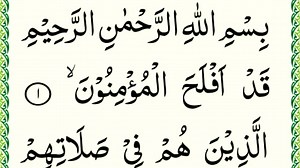 بِسْمِ اللهِ الرَّحْمٰنِ الرَّحِيْمِ
قَدْ اَفْلَحَ الْمُؤْمِنُوْنَ ۙ ١
الَّذِيْنَ هُمْ فِيْ صَلَاتِهِمْ